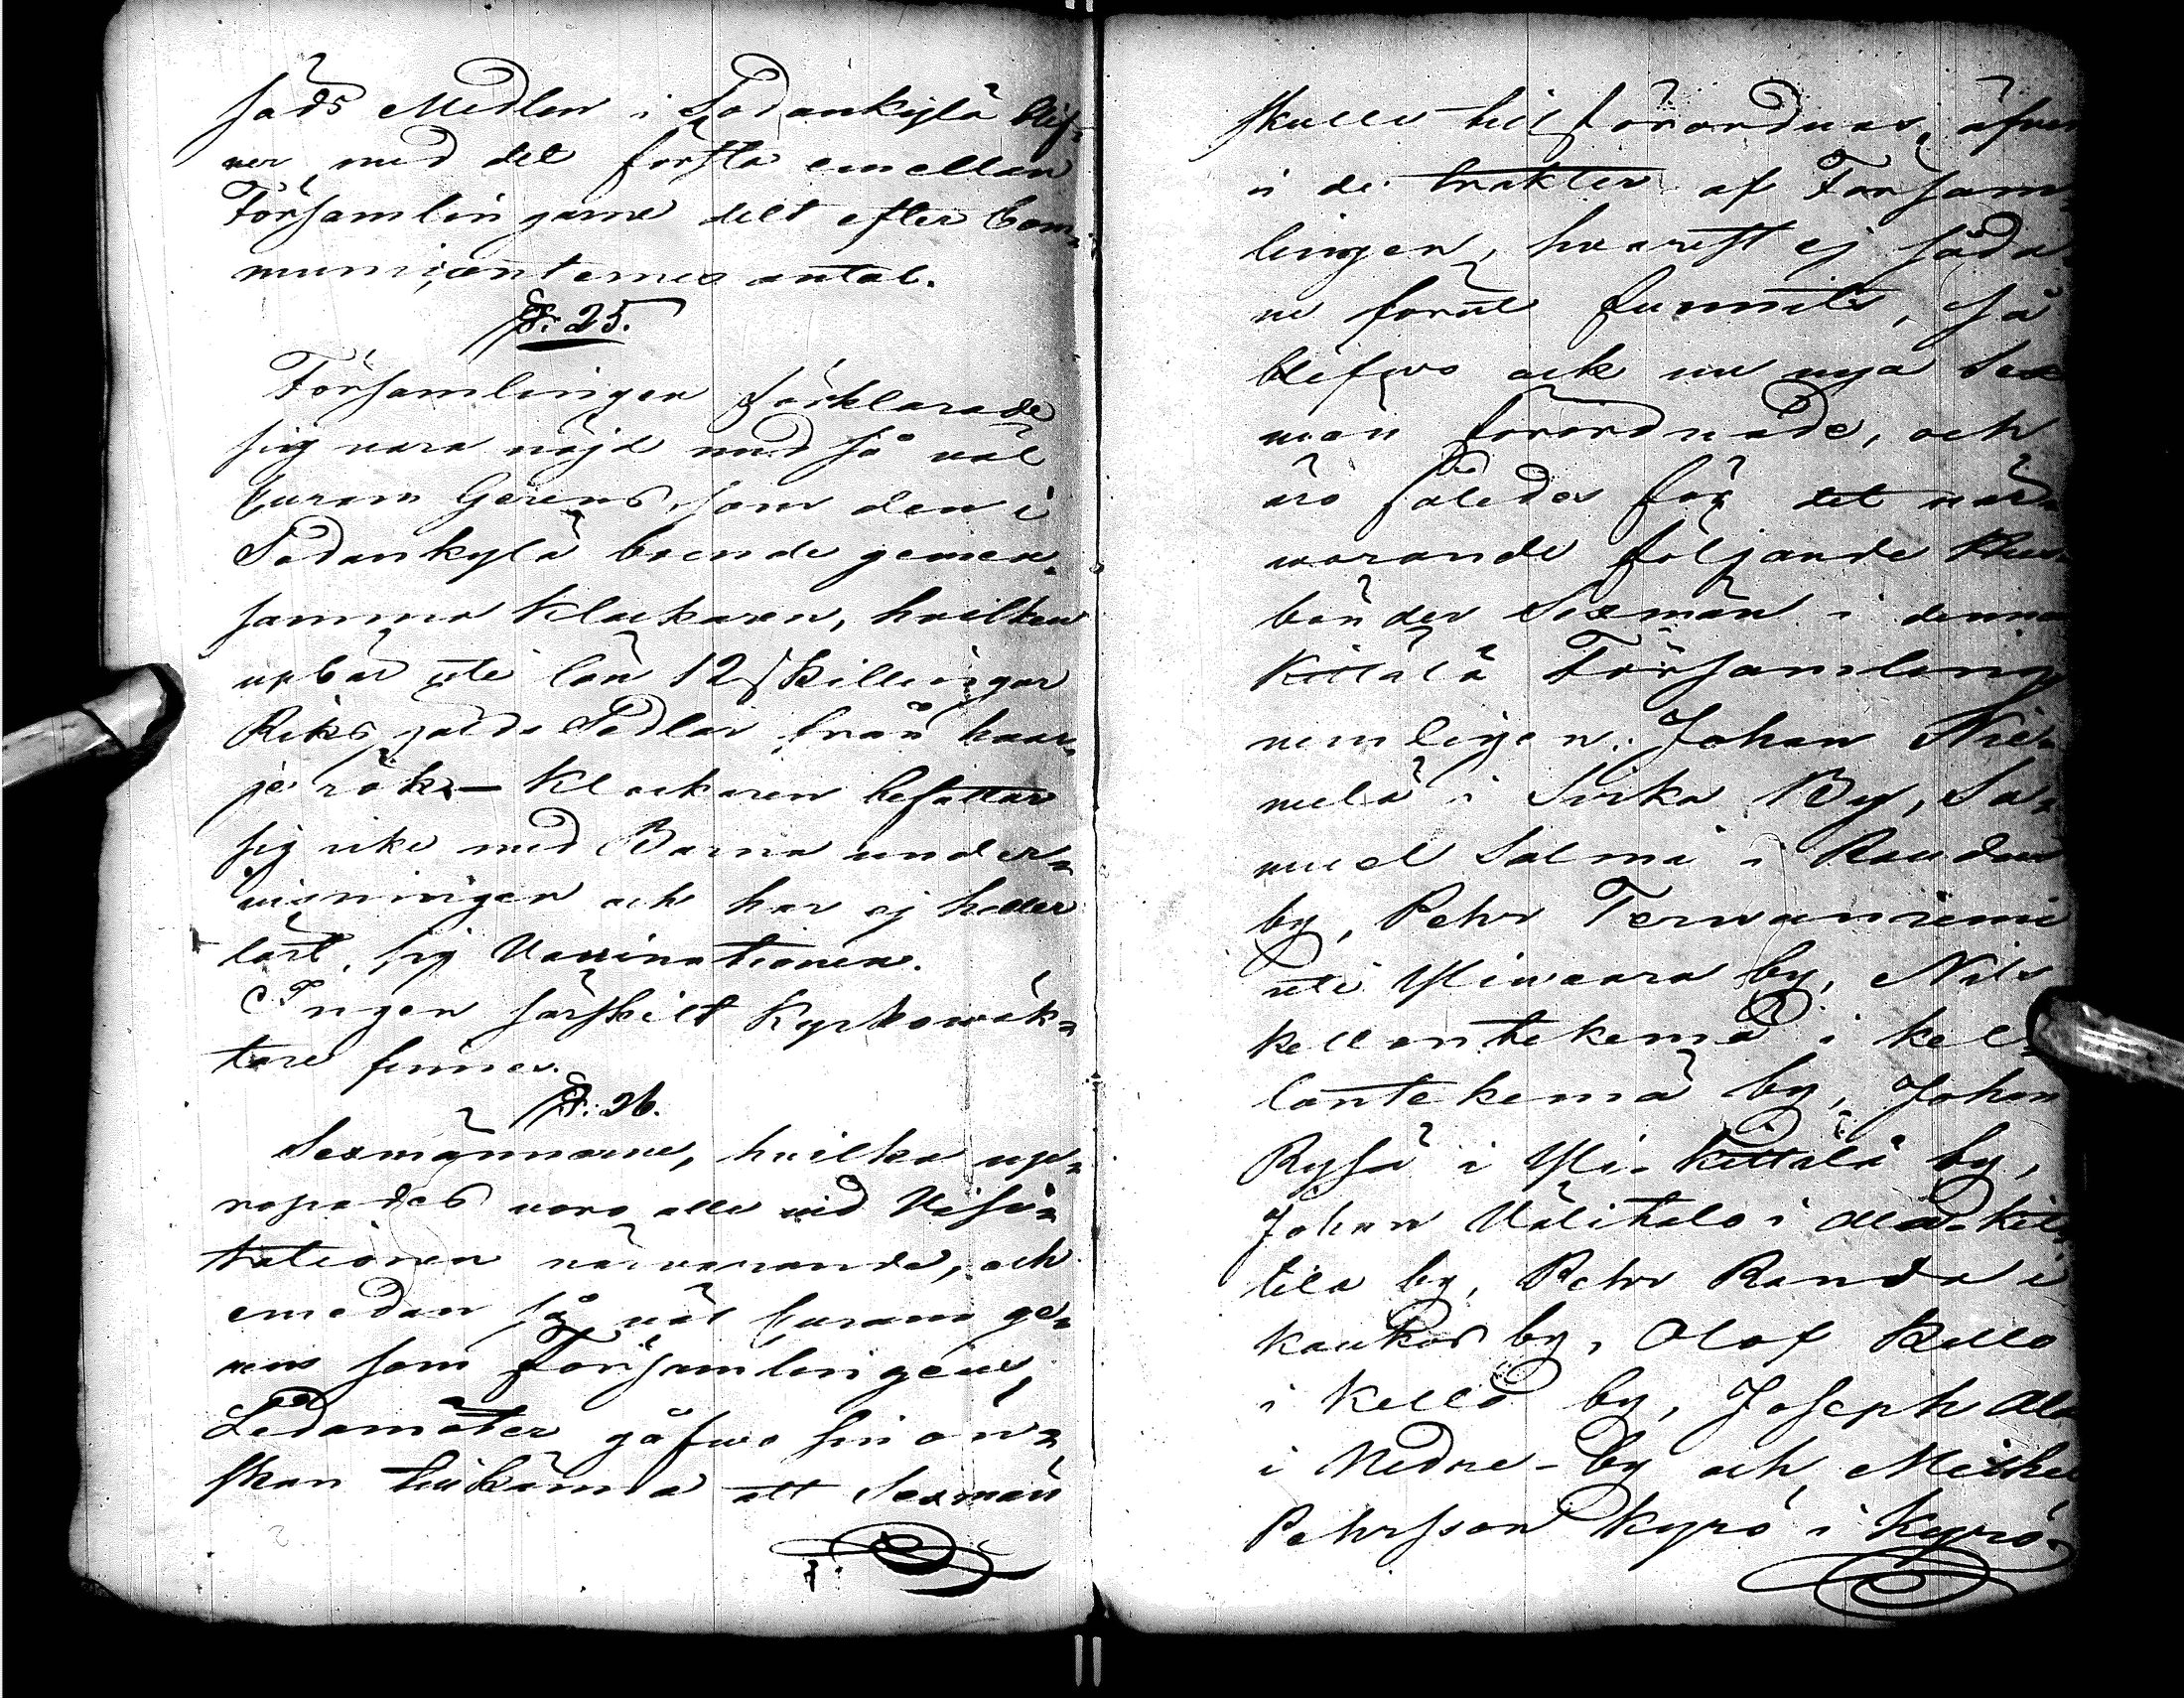 sads Medlen i Sodankylä blif-
ver med det första emellan
Församlingarne delt efter Com-
municanternes antal.
§: 25.
Församlingen förklarade
sig vara nöjd med så väl
Curam Gerens, som den i
Sodankylä boende gemen-
samma Klockaren, hvilken
upbär uti lön 12 skillingar
Riksgälds Sedlar från hvar-
je rök – Klockaren befattar
sig icke med Barna under-
visningen och har ej heller
lärt sig Vaccinationen.
Ingen särskilt Kyrkowäk-
tare finnes.
§: 26.
Sexmännerne, hvilka up-
ropades voro alle vid Visi-
tationen närvarande, och
emedan så väl Curam ge-
rens som Församlingens
Ledamöter gåfwo sin ön-
skan tilkänna att Sexmän
skulle til förordnas, äfven
i de trakter af Försam-
lingen, hvarest ej såda-
ne förut funnits, så
blefwo ock nu nya Sex
män förordnade, och
äro således för det när-
warande följande
bönder Sexmän i denna
Kittilä Församling
nemligen: Johan Nie-
melä i Sirka By, Sa-
muel Salmi i Raudus
by, Pehr Terwaniemi
uti Yliwaara by, Nils
Kellontekemä i Kel-
lontekemä by, Johan
Rysä i Yli-Kittilä by,
Johan Välitalo i Ala-Kit-
tila by, Pehr Randa i
Kaukos by, Olof Kello
i Kello by, Joseph Ala
i Nedre-by och Michel
Pehrsson Kyrö i Kyrö-